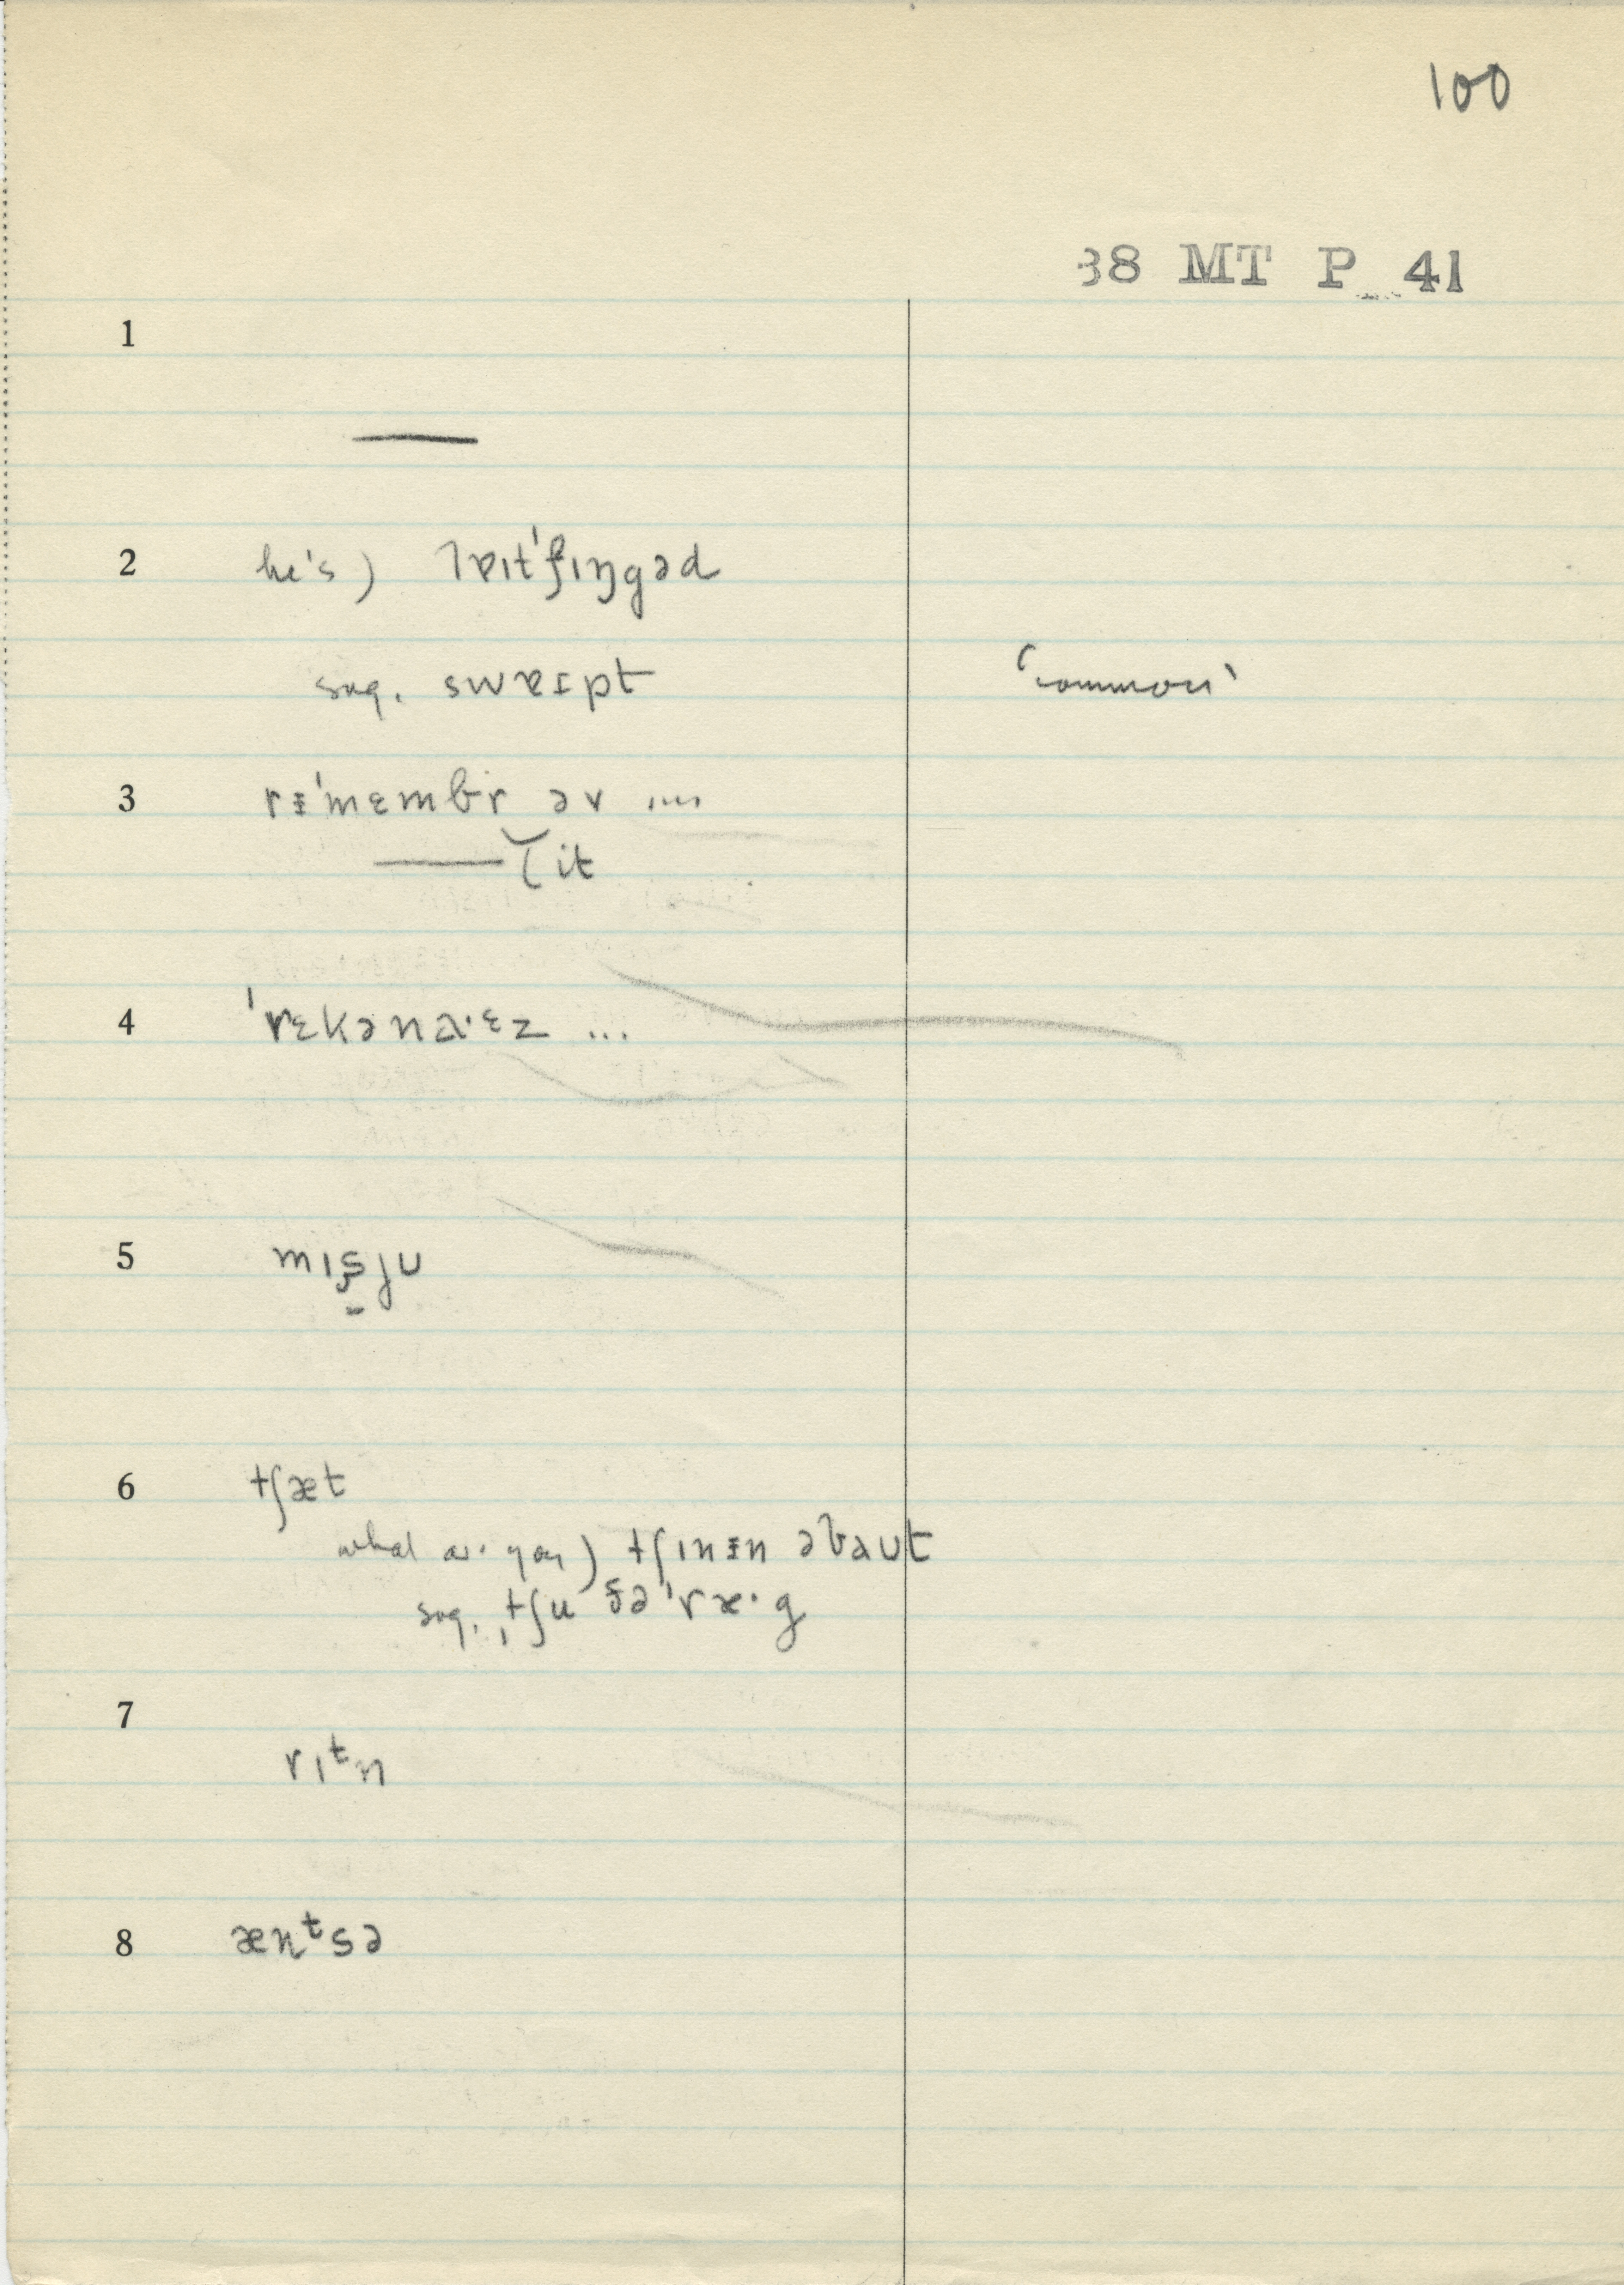 100
38 MT P 41
1
—
2 he's) lɐɪt'fɪŋgəd
sug. swɐɪpt 'common'
3 rᵻ'mɛmbr əv ....
—— (it
4 'rɛkənaˑɛz ...
5 mɪʂju
6 tʃæt
what are you) tʃɪnᵻn əbaut
sug. ˌtʃu ðə 'ræˑg
7 rɪᵗn
8 ænᵗsə